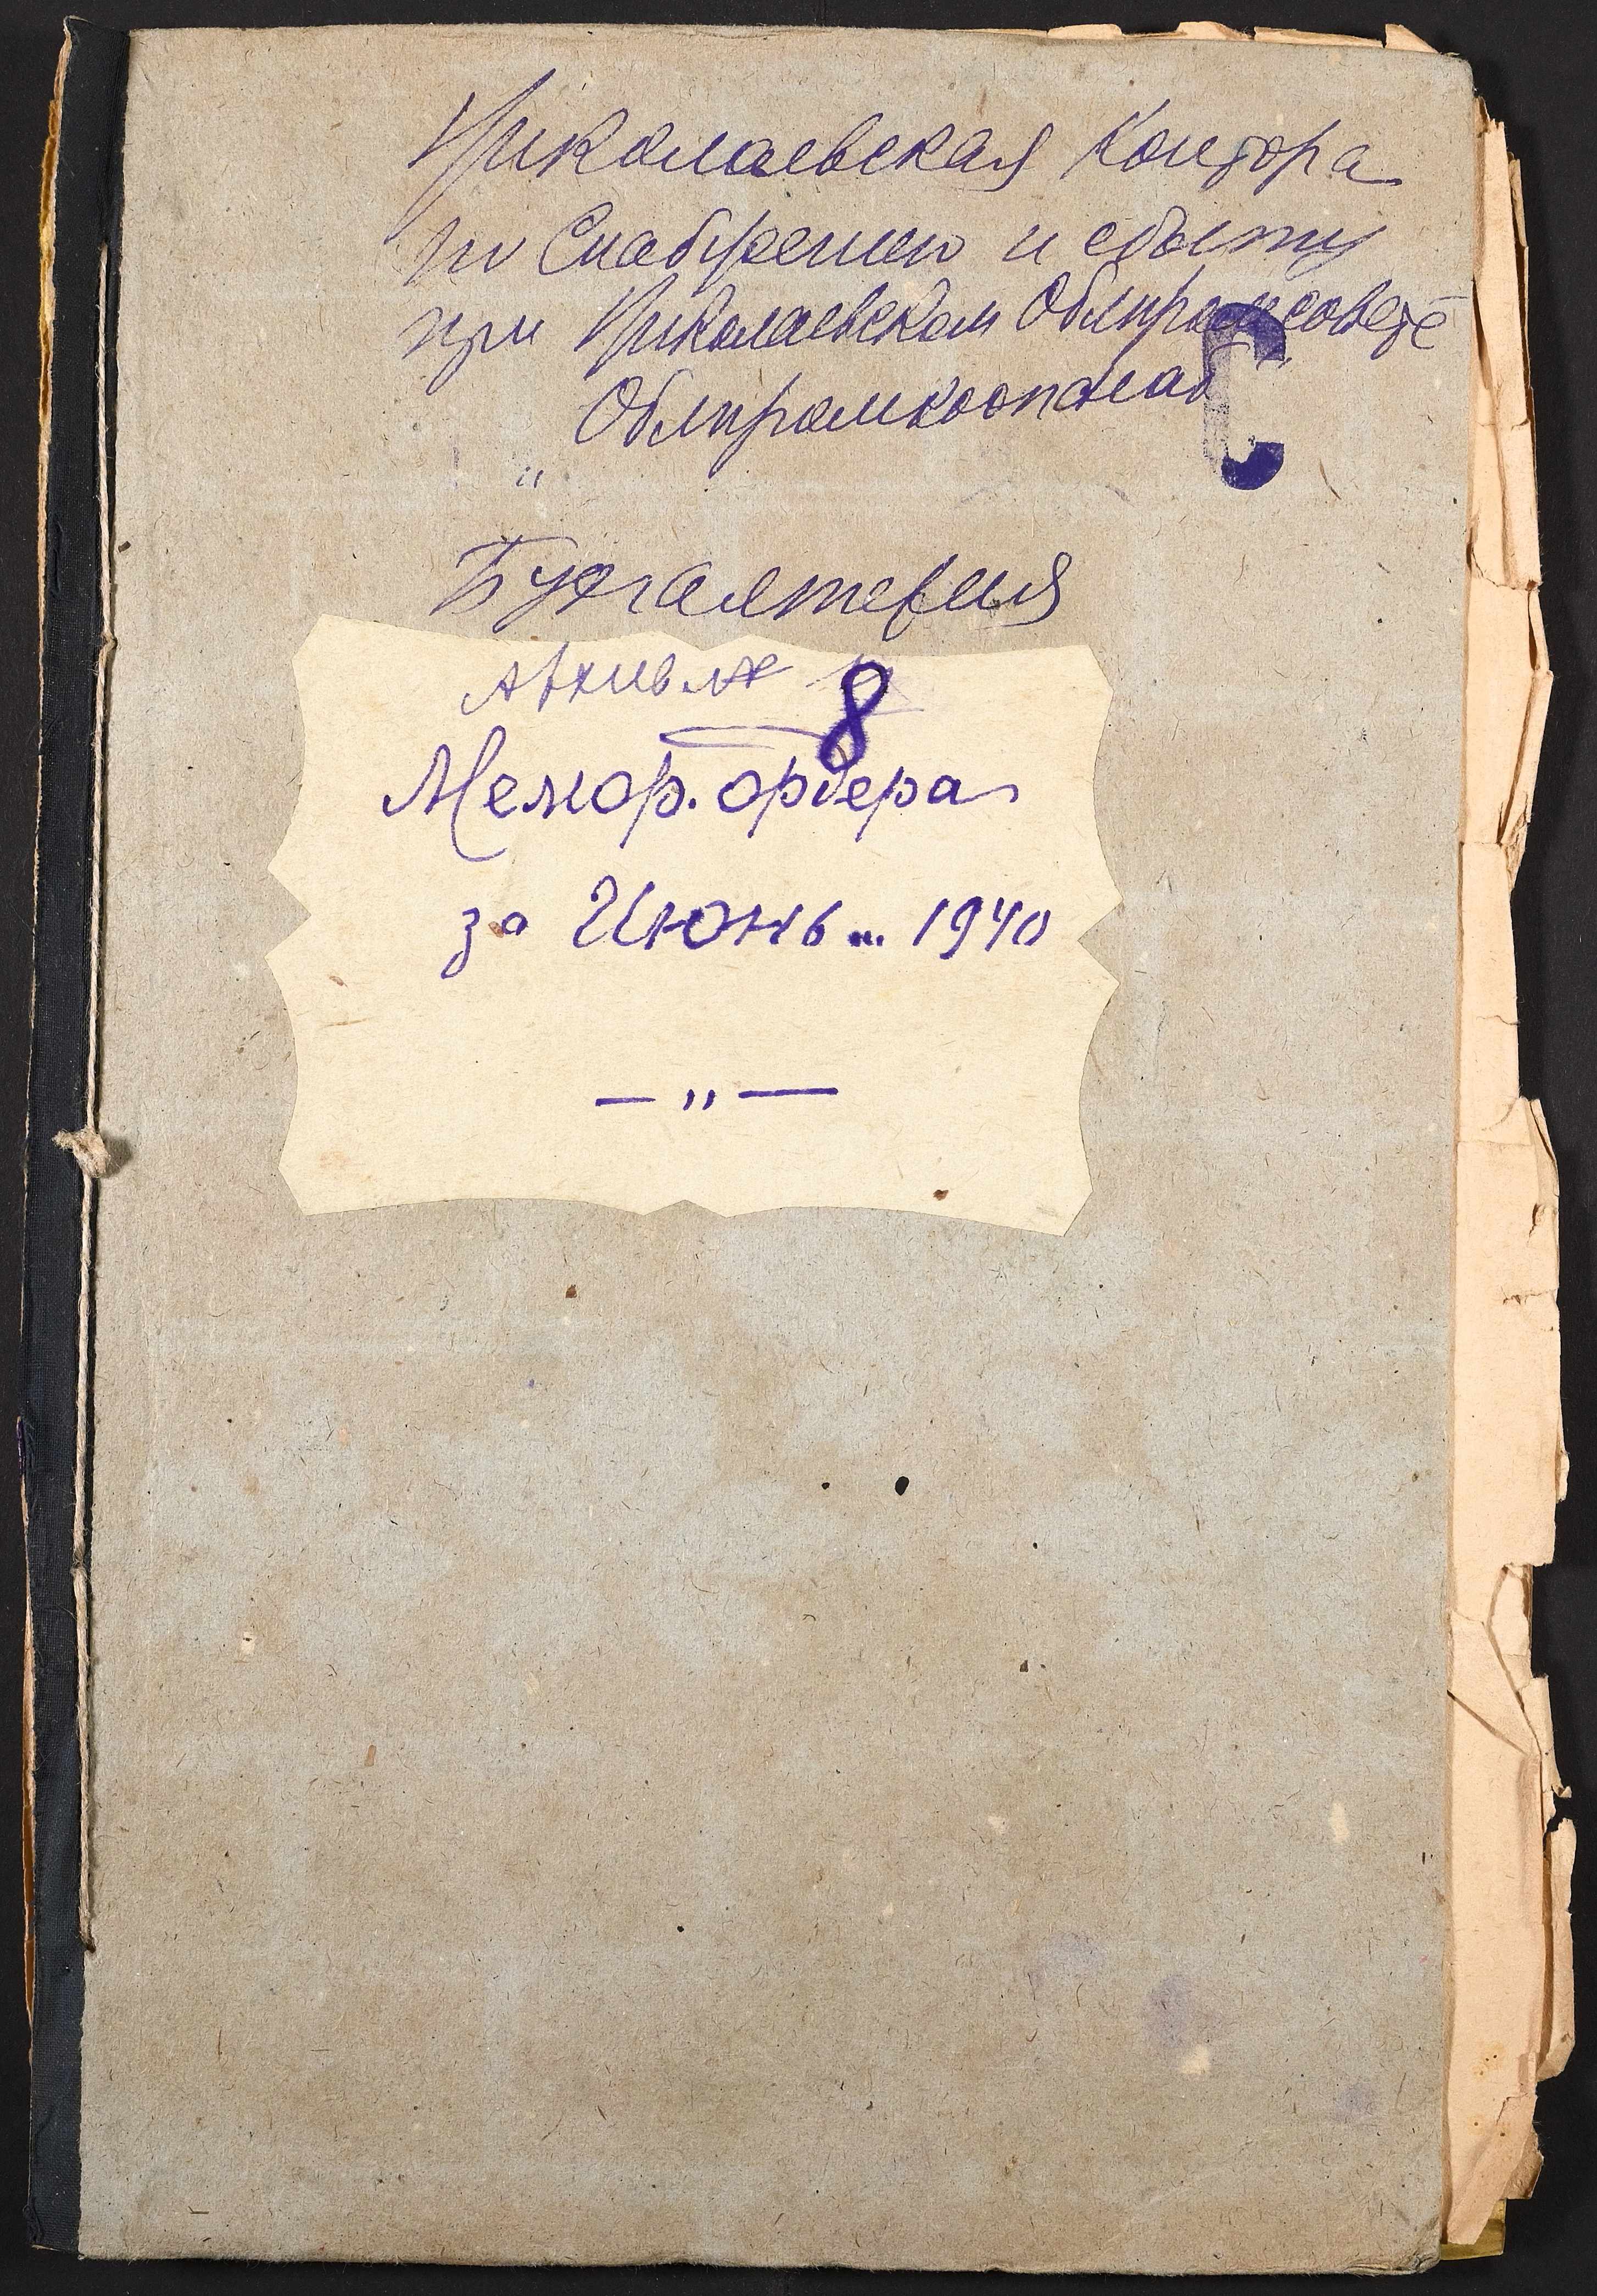 Николаевская Контора
по Снабжению и сбыту
при Николаевском Облпромсовете
Облпромкоопснаб
С
"
Бухгалтерия
Архив № 8
Мемор. ордера
за Июнь... 1940
— " —